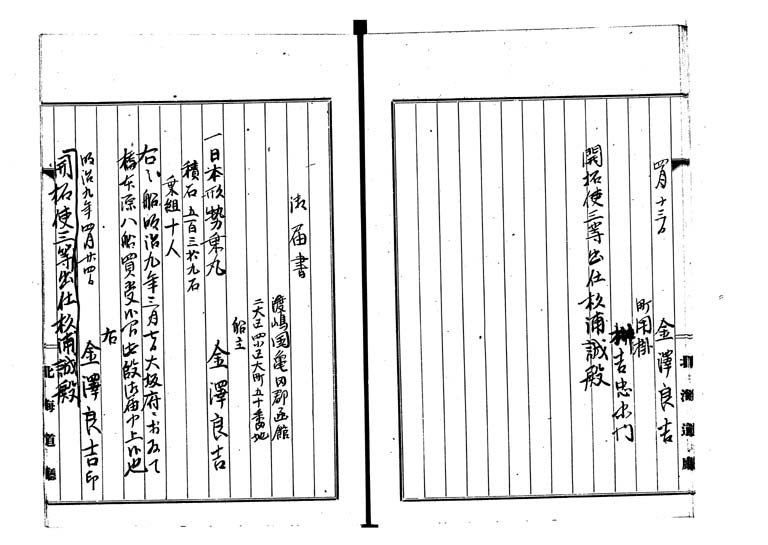 四月十三日
金澤良吉
町用掛
吉忠
開拓使三等出仕杉浦誠殿
北海道廳
御届書
渡嶋国亀田郡函館
二大区四小区大町五十番地
船主
金澤良吉
一日本形勢乗丸
積石五百三拾九石
乗組十人
右ハ船明治九年三月大坂府ニ於て
買受候間此段御届申上候也
右
金澤良吉印
明治九年四月廿四日
開拓使三等出仕杉浦誠殿
北海道廳